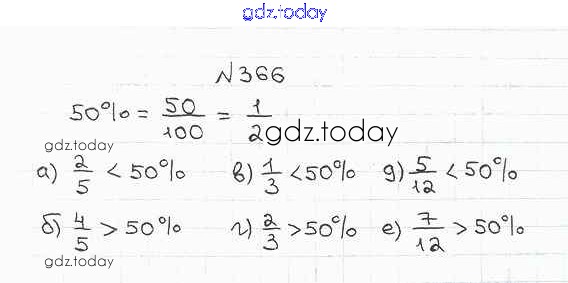 gdz.today
№366
50% = 50/100 = 1/2
gdz.today
gdz.today
а) 2/5 < 50% в) 1/3 < 50% д) 5/12 < 50%
б) 4/5 > 50% г) 2/3 > 50% е) 7/12 > 50%
gdz.today